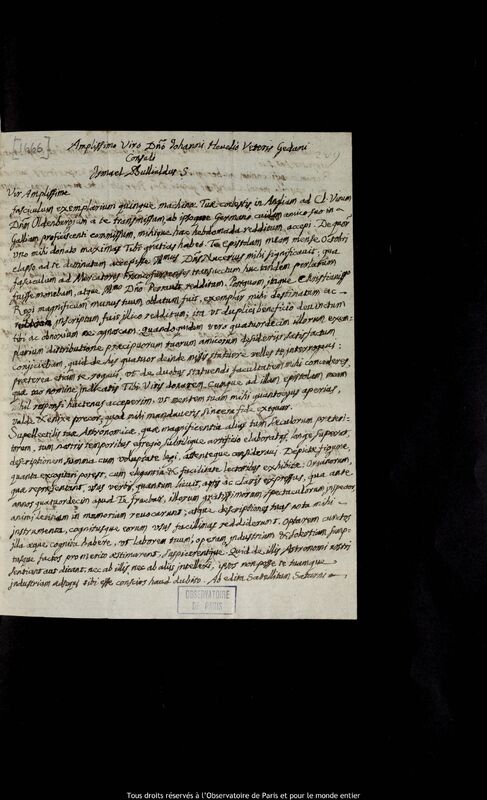 [1666]
Amplissimo Viro Dño Johanni Hevelio Veteris Gedani
Consuli
Ismael Bullialdus S.
Vir Amplissime
fasciculum exemplarium quinque, machinæ Tuæ cœlestis in Angliam ad Cl. Virum
Dñm Oldenburgium a te transmissum, ab ipso Germano cuidam amico suo in
Galliam proficiscenti commissum, mihique hac hebdomada redditum, accepi. De quor
uno mihi donato maximas Tibi gratias habeo. Te epistolam meam mense Octobri
elapso ad te destinatam accepisse Dñus Nucerius mihi significavit, qua
fasciculum ad Mercatores transmissum hac tandem perlatum
fuisse monebam, atque Dño Perrault redditum. Postquam itaque Christianissimo
Regi magnificum munus tuum oblatum fuit, exemplar mihi destinatum ac
inscriptum fuit illico redditum; ita ut duplici beneficio devinctum
tibi ac obnoxium me agnoscam. quandoquidem vero quatuordecim illorum exem-
plarium distributione, præcipuorum tuorum amicorum desideriis satisfactum
conjiciebam, quid de his quatuor deinde missis statuere velles te interrogavi:
præterea etiam te rogavi, ut de duobus statuendi facultatem mihi concederes,
quæ tuo nomine indicatis Tibi Viris donarem. cumque ad illam epistolam meam
nihil responsi hactenus acceperim, ut mentem tuam mihi quantocyus aperias,
valde & enixe precor, quod mihi mandaveris sincera fide exequar.
Supellectilis tuæ Astronomicæ, quæ magnificentia alias tum sæculorum præteri-
torum, tum nostri temporibus egregio subtilique artificio elaboratas, longe superat,
descriptionem summa cum voluptate legi, attenteque consideravi. Depictæ figuræ,
quanta excogitari potest, cum elegantia & facilitate lectoribus exhibitæ; Organorum,
quæ repræsentant, usus verbis, quantum licuit, aptis ac claris expressus, quæ ante
annos quatuordecim apud Te fruebar, illorum gratissimorum spectaculorum inspector,
animi in memoriam revocarunt; atque descriptiones tuas nota mihi
instrumenta, cognitusque eorum usus facillimas reddiderunt. Optarem cunctos
illa æque cognita habere, ut laborem tuum, operam, industriam & solertiam, sump-
tusque factos pro merito æstimarent, suspicerentque. Quid de illis Astronomi nostri
sentiant aut dicant, nec ab illis nec ab aliis intellexi, ipsos non posse te tuamque
industriam sibi esse conscios haud dubito. Ab edita Satellitum Saturni
OBSERVATOIRE
DE PARIS
Tous droits réservés à l'Observatoire de Paris et pour le monde entier